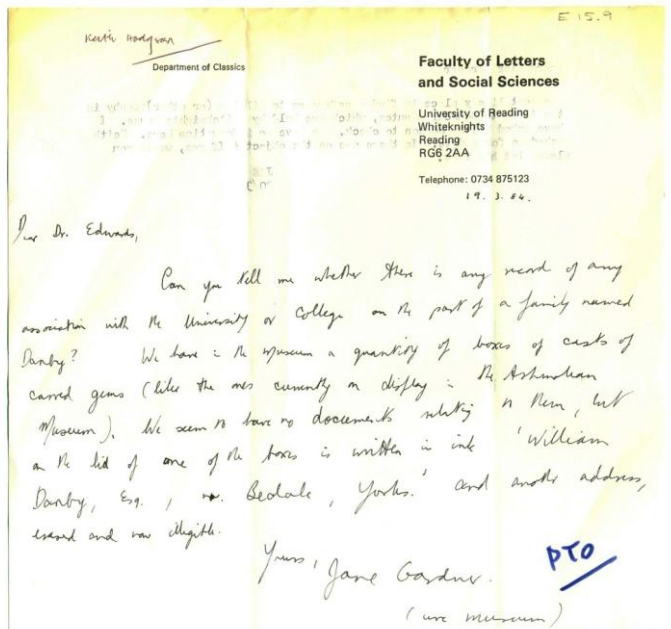 E 15.9
Keith Hodgson
Department of Classics
Faculty of Letters
and Social Sciences
University of Reading
Whiteknights
Reading
RG6 2AA
Telephone: 0734 875123
19. 3. 84.
Dear Dr. Edwards,
Can you tell me whether there is any record of any
association with the University or College on the part of a family named
Danby? We have in the museum a quantity of boxes of casts of
carved gems (like the ones currently on display in the Ashmolean
Museum). We seem to have no documents relating to them, but
on the lid of one of the boxes is written in ink 'William
Danby, Esq., nr. Bedale, Yorks.' and another address,
erased and now illegible.
Yours,
Jane Gardner.
(Ure Museum)
PTO